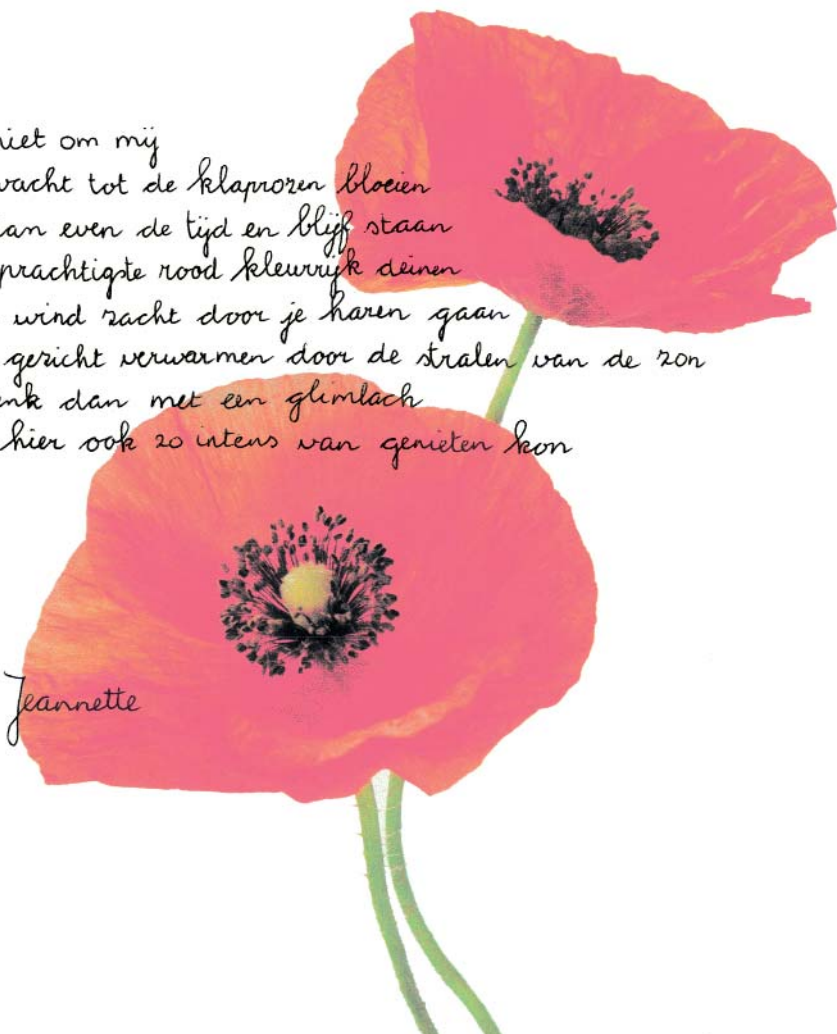 niet om mij
wacht tot de klaprozen bloeien
dan even de tijd en blijf staan
prachtigste rood kleurrijk deinen
wind zacht door je haren gaan
gezicht verwarmen door de stralen van de zon
denk dan met een glimlach
hier ook zo intens van genieten kon
Jeannette